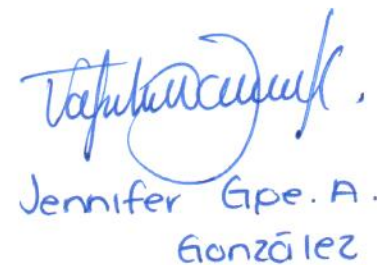 Jennifer Gpe. A.
González